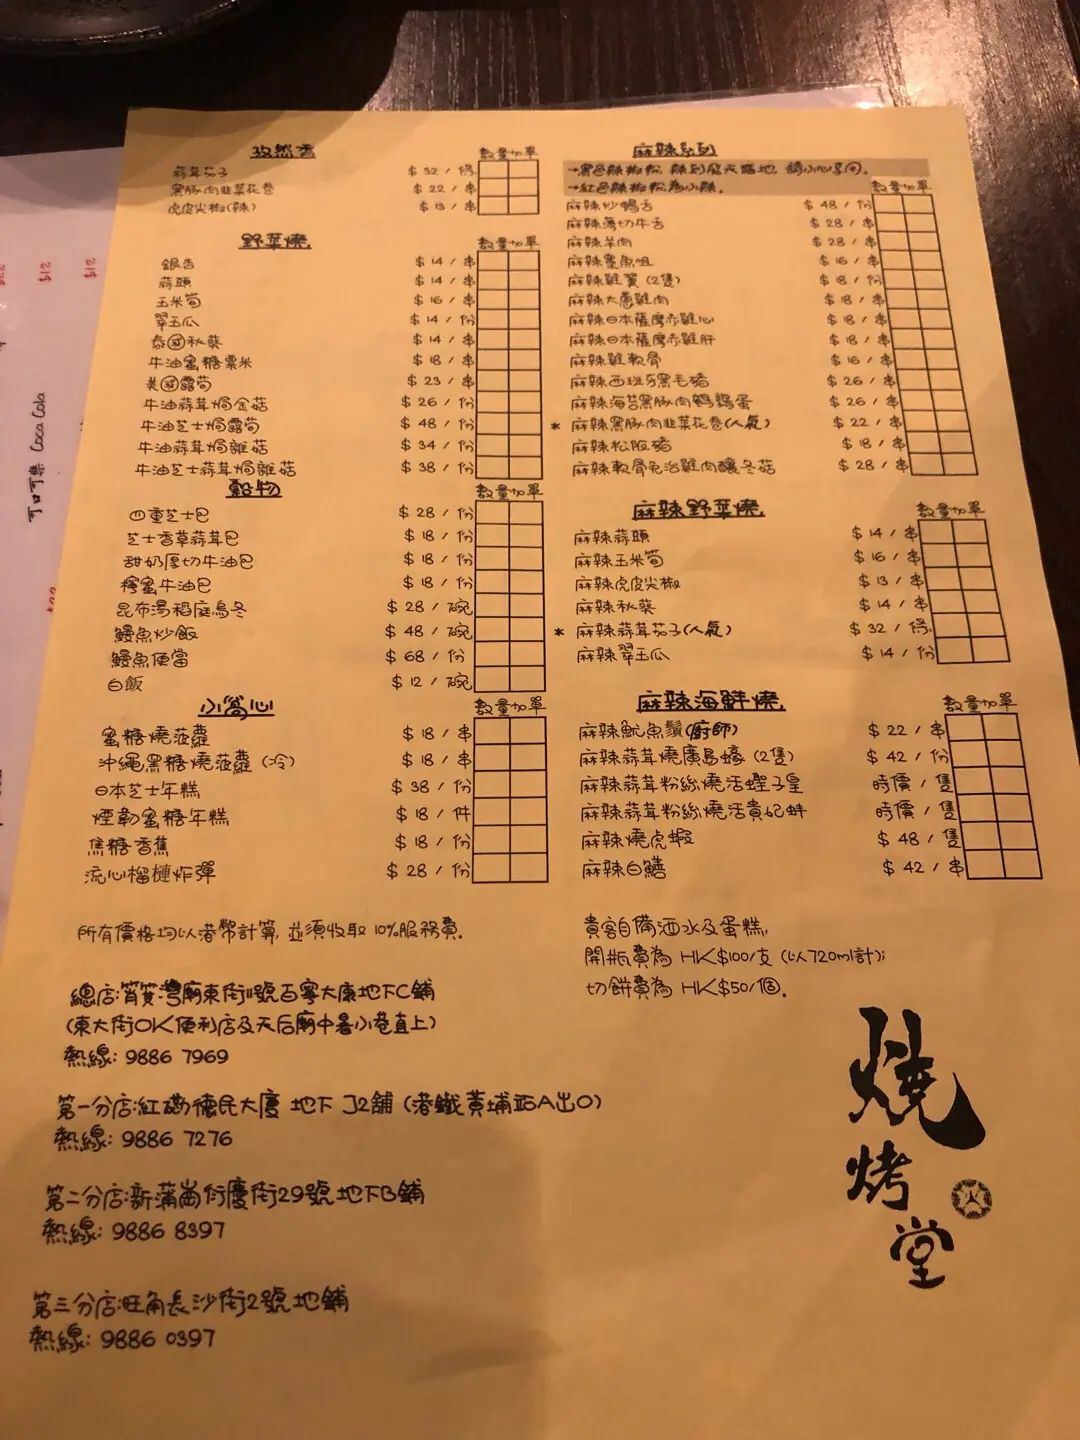 孜然香 數量 加單
蒜茸茄子 $32 / 條
黑豚肉韭菜花卷 $22 / 串
虎皮尖椒(辣) $13 / 串
野菜燒 數量 加單
銀杏 $14 / 串
蒜頭 $14 / 串
玉米筍 $16 / 串
翠玉瓜 $14 / 份
泰國秋葵 $14 / 串
牛油蜜糖粟米 $18 / 串
美國露筍 $23 / 串
牛油蒜茸焗金菇 $26 / 份
牛油芝士焗露筍 $48 / 份
牛油蒜茸焗雜菇 $34 / 份
牛油芝士蒜茸焗雜菇 $38 / 份
穀物 數量 加單
四重芝士包 $28 / 份
芝士香草蒜茸包 $18 / 份
甜奶厚切牛油包 $18 / 份
蜂蜜牛油包 $18 / 份
昆布湯稻庭烏冬 $28 / 碗
鰻魚炒飯 $48 / 碗
鰻魚便當 $68 / 份
白飯 $12 / 碗
小窩心 數量 加單
蜜糖燒菠蘿 $18 / 串
沖繩黑糖燒菠蘿 (冷) $18 / 串
日本芝士年糕 $38 / 份
煙韌蜜糖年糕 $18 / 件
焦糖香蕉 $18 / 份
流心榴槤炸彈 $28 / 份
麻辣系列
→黑色辣椒粉, 辣到飛天遁地, 請小心享用.
→紅色辣椒粉為小辣. 數量 加單
麻辣炒鴨舌 $48 / 份
麻辣薄切牛舌 $28 / 串
麻辣羊肉 $28 / 串
麻辣墨魚咀 $16 / 串
麻辣雞翼 (2隻) $18 / 份
麻辣大蔥雞肉 $18 / 串
麻辣日本薩摩赤雞心 $18 / 串
麻辣日本薩摩赤雞肝 $18 / 串
麻辣雞軟骨 $16 / 串
麻辣西班牙黑毛豬 $26 / 串
麻辣海苔黑豚肉鵪鶉蛋 $26 / 串
* 麻辣黑豚肉韭菜花卷(人氣) $22 / 串
麻辣松阪豬 $18 / 串
麻辣軟骨免治雞肉釀冬菇 $28 / 串
麻辣野菜燒 數量 加單
麻辣蒜頭 $14 / 串
麻辣玉米筍 $16 / 串
麻辣虎皮尖椒 $13 / 串
麻辣秋葵 $14 / 串
* 麻辣蒜茸茄子(人氣) $32 / 條
麻辣翠玉瓜 $14 / 份
麻辣海鮮燒 數量 加單
麻辣魷魚鬚(廚師) $22 / 串
麻辣蒜茸燒廣島蠔 (2隻) $42 / 份
麻辣蒜茸粉絲燒活蟶子皇 時價 / 隻
麻辣蒜茸粉絲燒活貴妃蚌 時價 / 隻
麻辣燒虎蝦 $48 / 隻
麻辣白鱔 $42 / 串
所有價格均以港幣計算, 並須收取 10%服務費.
貴客自備酒水及蛋糕,
開瓶費為 HK$100/支 (以720ml計);
切餅費為 HK$50/個.
總店:筲箕灣廟東街11號百寧大廈地下C舖
(東大街OK便利店及天后廟中暑小巷直上)
熱線: 9886 7969
第一分店:紅磡德民大廈 地下 J2舖 (港鐵黃埔站A出口)
熱線: 9886 7276
第二分店:新蒲崗衍慶街29號地下B舖
熱線: 9886 8397
第三分店:旺角長沙街2號地舖
熱線: 9886 0397
燒烤堂
火
可口可樂 Coca Cola
$12
$12